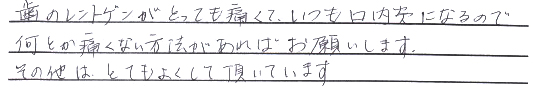 歯のレントゲンがとっても痛くて、いつも口内炎になるので
何とか痛くない方法があればお願いします.
その他は、とてもよくして頂いています